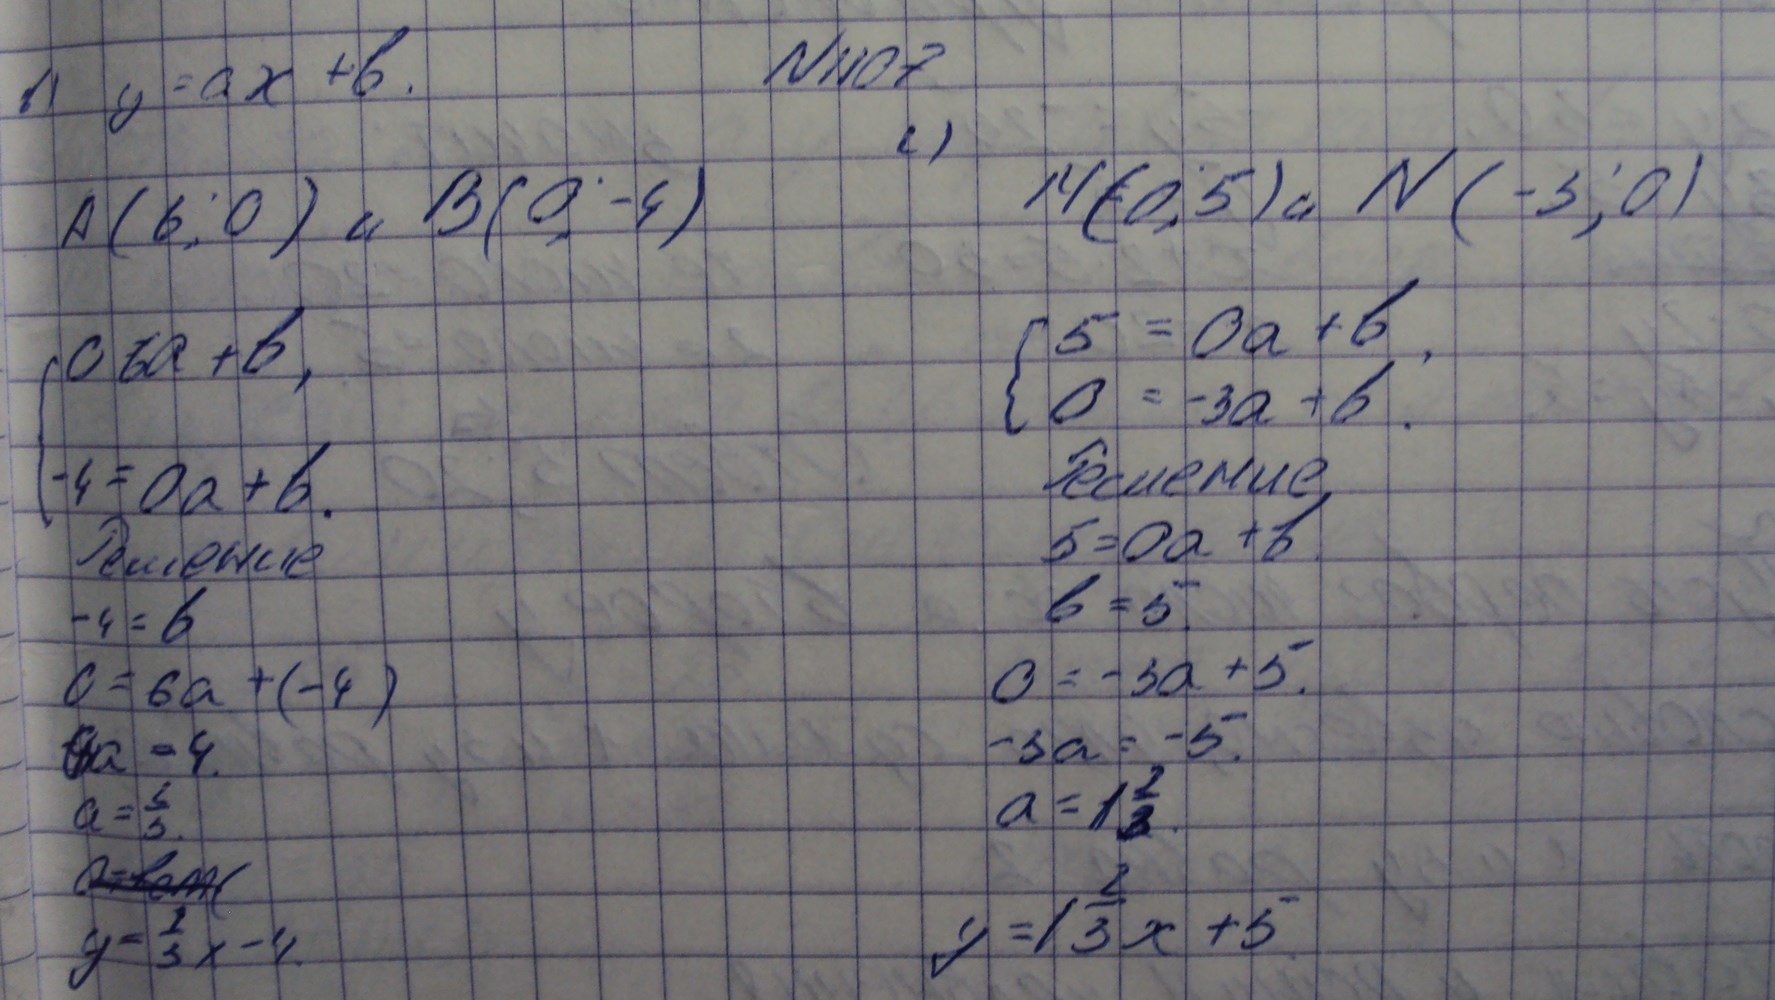 N1107
б) y = ax + b.
A(6; 0) и B(0; -4)
0 = 6a + b,
-4 = 0a + b.
Решение
-4 = b
0 = 6a + (-4)
6a = 4.
y = 2/3 x - 4
с)
M(0; 5) и N(-3; 0)
5 = 0a + b,
0 = -3a + b.
Решение
5 = 0a + b
b = 5.
0 = -3a + 5.
-3a = -5.
a = 1 2/3.
y = 1 2/3 x + 5